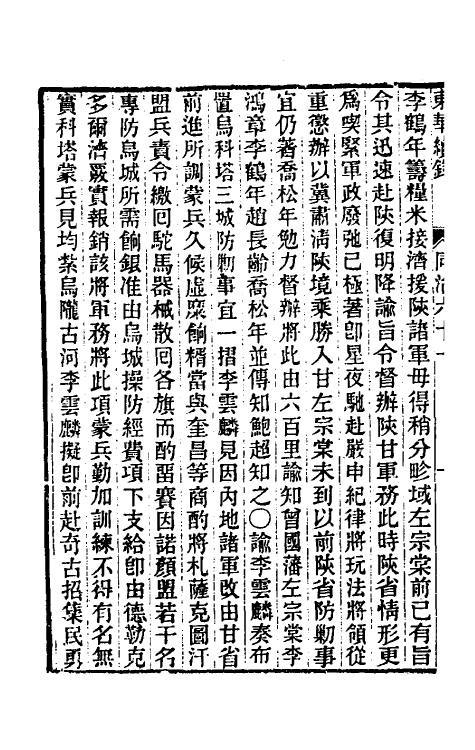 東華續錄 同治六十一
李鶴年籌糧米接濟援陝諸軍毋得稍分畛域左宗棠前已有旨
令其迅速赴陝復明降諭旨令督辦陝甘軍務此時陝省情形更
爲喫緊軍政廢弛已極著卽星夜馳赴嚴申紀律將玩法將領從
重懲辦以冀肅淸陝境乘勝入甘左宗棠未到以前陝省防勦事
宜仍著喬松年勉力督辦將此由六百里諭知曾國藩左宗棠李
鴻章李鶴年趙長齡喬松年並傳知鮑超知之〇諭李雲麟奏布
置烏科塔三城防勦事宜一摺李雲麟見因內地諸軍改由甘省
前進所調蒙兵久候虛糜餉糈當與奎昌等商酌將札薩克圖汗
盟兵責令繳囘駝馬器械散囘各旗而酌畱賽因諾顏盟若干名
專防烏城所需餉銀准由烏城操防經費項下支給卽由德勒克
多爾濟覈實報銷該將軍務將此項蒙兵勤加訓練不得有名無
實科塔蒙兵見均紮烏隴古河李雲麟擬卽前赴奇古招集民勇